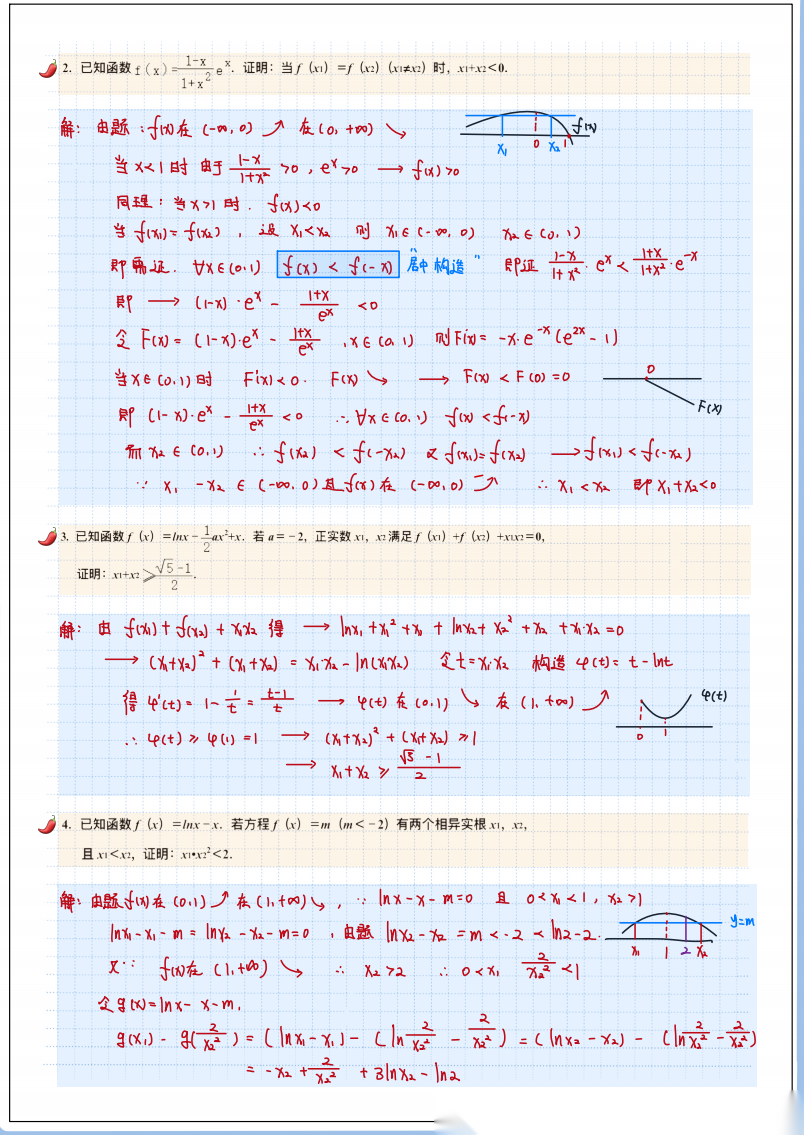 2. 已知函数 f(x)=\frac{1-x}{1+x^2}e^x. 证明：当 f（x₁）=f（x₂）（x₁≠x₂）时，x₁+x₂<0.
解：由题：f(x)在 (-∞,0) ↗ 在(0,+∞) ↘
f(x)
x₁ 0 x₂ 1
当 x<1时 由于 \frac{1-x}{1+x²} >0 , eˣ>0 → f(x)>0
同理：当x>1时. f(x)<0
当 f(x₁)=f(x₂) , 设 x₁<x₂ 则 x₁∈(-∞,0) x₂∈(0,1)
即需证. ∀x∈(0,1) f(x) < f(-x) “居中构造” 即证 \frac{1-x}{1+x²}·eˣ < \frac{1+x}{1+x²}·e⁻ˣ
即 → (1-x)·eˣ - \frac{1+x}{eˣ} <0
令 F(x)= (1-x)·eˣ - \frac{1+x}{eˣ} , x∈(0,1) 则F'(x)= -x·e⁻ˣ(e²ˣ-1)
当x∈(0,1)时 F'(x)<0. F(x) ↘ → F(x) < F(0)=0
0
F(x)
即 (1-x)·eˣ - \frac{1+x}{eˣ} <0 ∴∀x∈(0,1) f(x)<f(-x)
而 x₂∈(0,1) ∴ f(x₂) < f(-x₂) 又 f(x₁)=f(x₂) → f(x₁)<f(-x₂)
∵ x₁ -x₂ ∈ (-∞,0)且f(x)在 (-∞,0) ↗ ∴ x₁<x₂ 即x₁+x₂<0
3. 已知函数 f（x）=lnx-\frac{1}{2}ax²+x. 若 a=-2，正实数 x₁，x₂ 满足 f（x₁）+f（x₂）+x₁x₂=0，
证明：x₁+x₂⩾\frac{√5-1}{2}.
解：由 f(x₁)+f(x₂)+x₁x₂ 得 → lnx₁+x₁²+x₁ + lnx₂+x₂²+x₂+x₁·x₂=0
→ (x₁+x₂)² + (x₁+x₂) = x₁·x₂-ln(x₁x₂) 令t=x₁·x₂ 构造 φ(t)= t-lnt
得 φ'(t)= 1-\frac{1}{t} = \frac{t-1}{t} → φ(t) 在 (0,1) ↘ 在 (1,+∞) ↗
φ(t)
0 1
∴ φ(t)⩾φ(1)=1 → (x₁+x₂)²+(x₁+x₂)⩾1
→ x₁+x₂⩾\frac{√5-1}{2}
4. 已知函数 f（x）=lnx-x. 若方程 f（x）=m（m<-2）有两个相异实根 x₁，x₂，
且 x₁<x₂，证明：x₁•x₂²<2.
解：由题f(x)在 (0,1) ↗ 在 (1,+∞) ↘ , ∵ lnx-x-m=0 且 0<x₁<1, x₂>1
y=m
x₁ 1 2 x₂
lnx₁-x₁-m = lnx₂-x₂-m=0 , 由题 lnx₂-x₂ =m<-2<ln2-2.
又∵ f(x)在 (1,+∞) ↘ ∴ x₂>2 ∴ 0<x₁ \frac{2}{x₂²} <1
令g(x)=lnx-x-m,
g(x₁)-g(\frac{2}{x₂²}) = (lnx₁-x₁)-(ln\frac{2}{x₂²}-\frac{2}{x₂²}) = (lnx₂-x₂)-(ln\frac{2}{x₂²}-\frac{2}{x₂²})
= -x₂+\frac{2}{x₂²} +3lnx₂-ln2